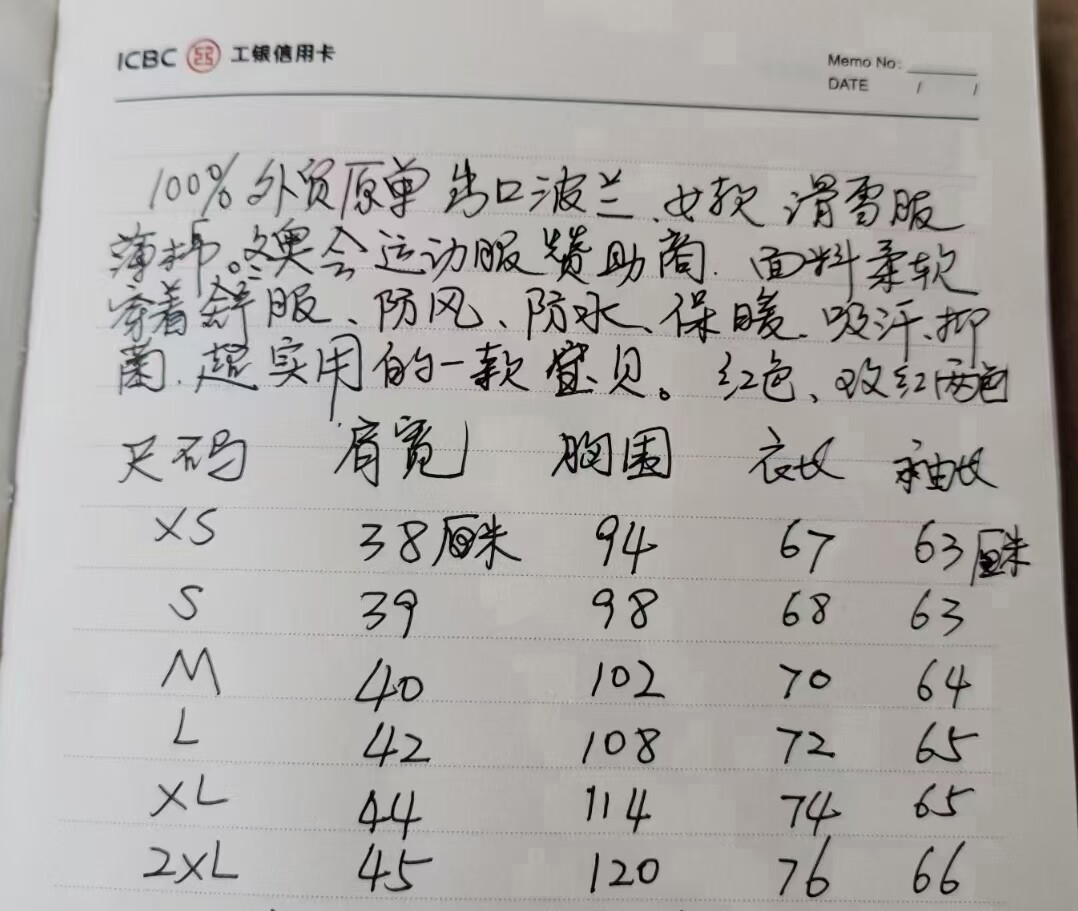 ICBC 工银信用卡
Memo No:
DATE / /
100% 外贸原单 出口波兰、女款 滑雪服
薄棉。冬奥会运动服赞助商. 面料柔软
穿着舒服、防风、防水、保暖. 吸汗.抑
菌. 超实用的一款宝贝。 红色、玫红两色
尺码 肩宽 胸围 衣长 袖长
XS 38厘米 94 67 63厘米
S 39 98 68 63
M 40 102 70 64
L 42 108 72 65
XL 44 114 74 65
2XL 45 120 76 66